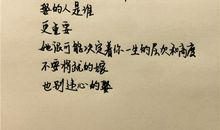 娶的人是谁
更重要
她很可能决定着你一生的层次和高度
不要将就的嫁
也别违心的娶